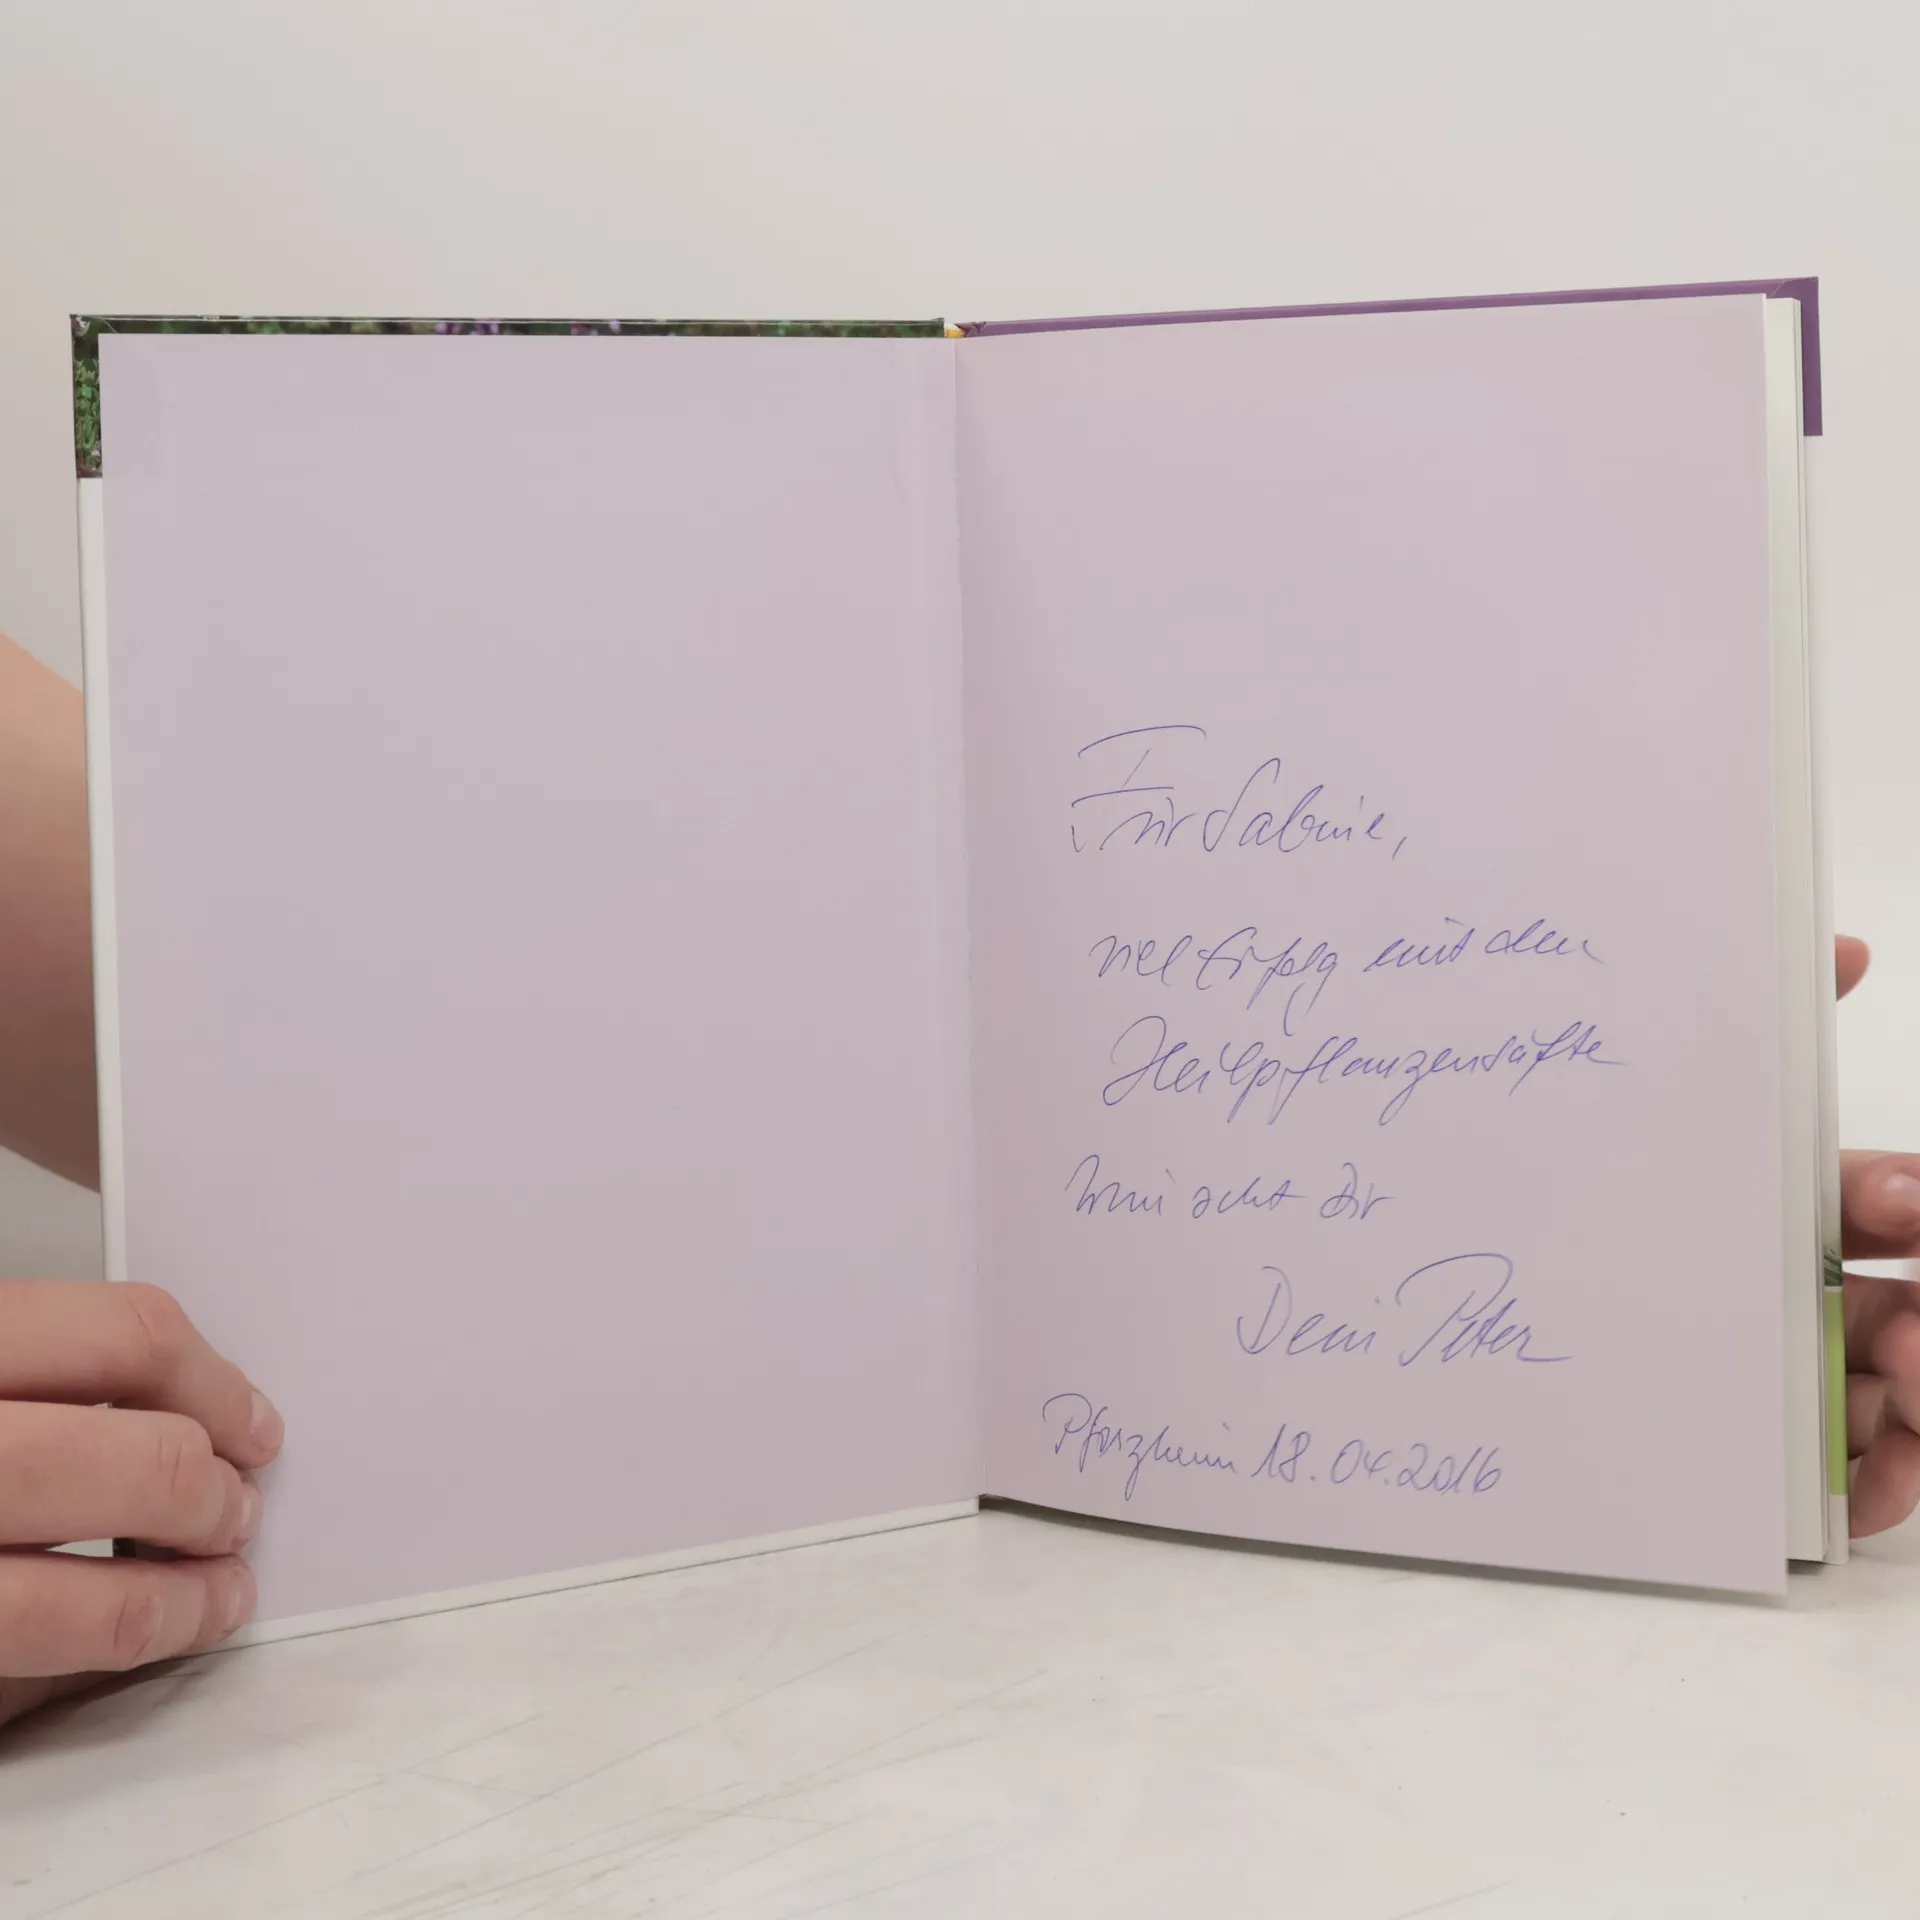 Für Sabine,
viel Erfolg mit den
Heilpflanzensäfte
wünscht Dir
Dein Peter
Pforzheim 18.04.2016